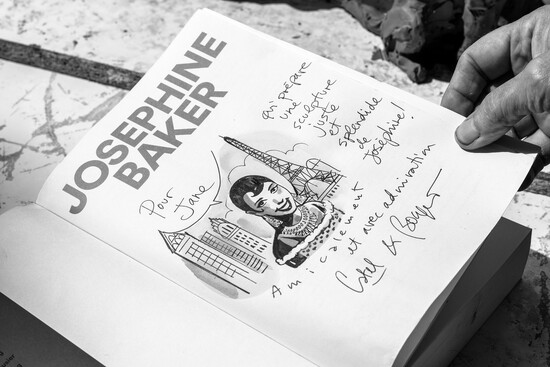 JOSEPHINE
BAKER
Pour
Jane
qui prépare
une
sculpture
juste
et
splendide
de
Joséphine!
Amicalement
et avec admiration
Catel &